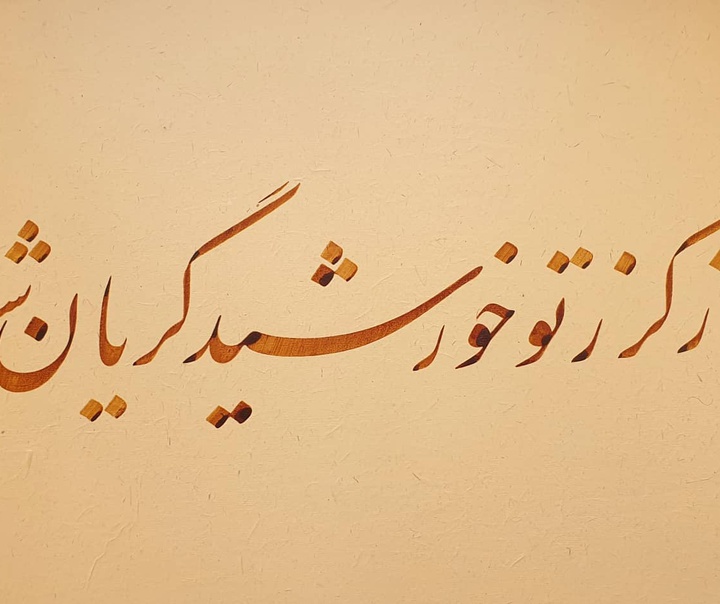 ز تو خورشید گریان